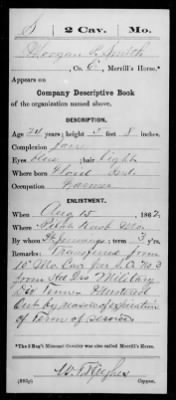 S 2 Cav. Mo.
Morgan Smith
, Co. C, Merrill's Horse.*
Appears on
Company Descriptive Book
of the organization named above.
DESCRIPTION.
Age 24 years; height 5 feet 8 inches.
Complexion fair
Eyes blue; hair light
Where born Ind.
Occupation Farmer
ENLISTMENT.
When Aug 15, 1862.
Where Knob Mo
By whom ; term 3 y'rs.
Remarks: Transferred from
10" Mo Cav for S. O. No 3
from Military
Div Mustered
Out by reason of expiration
of term of service
*The 2 Reg't Missouri Cavalry was also called Merrill's Horse.
Hughes
Copyist.